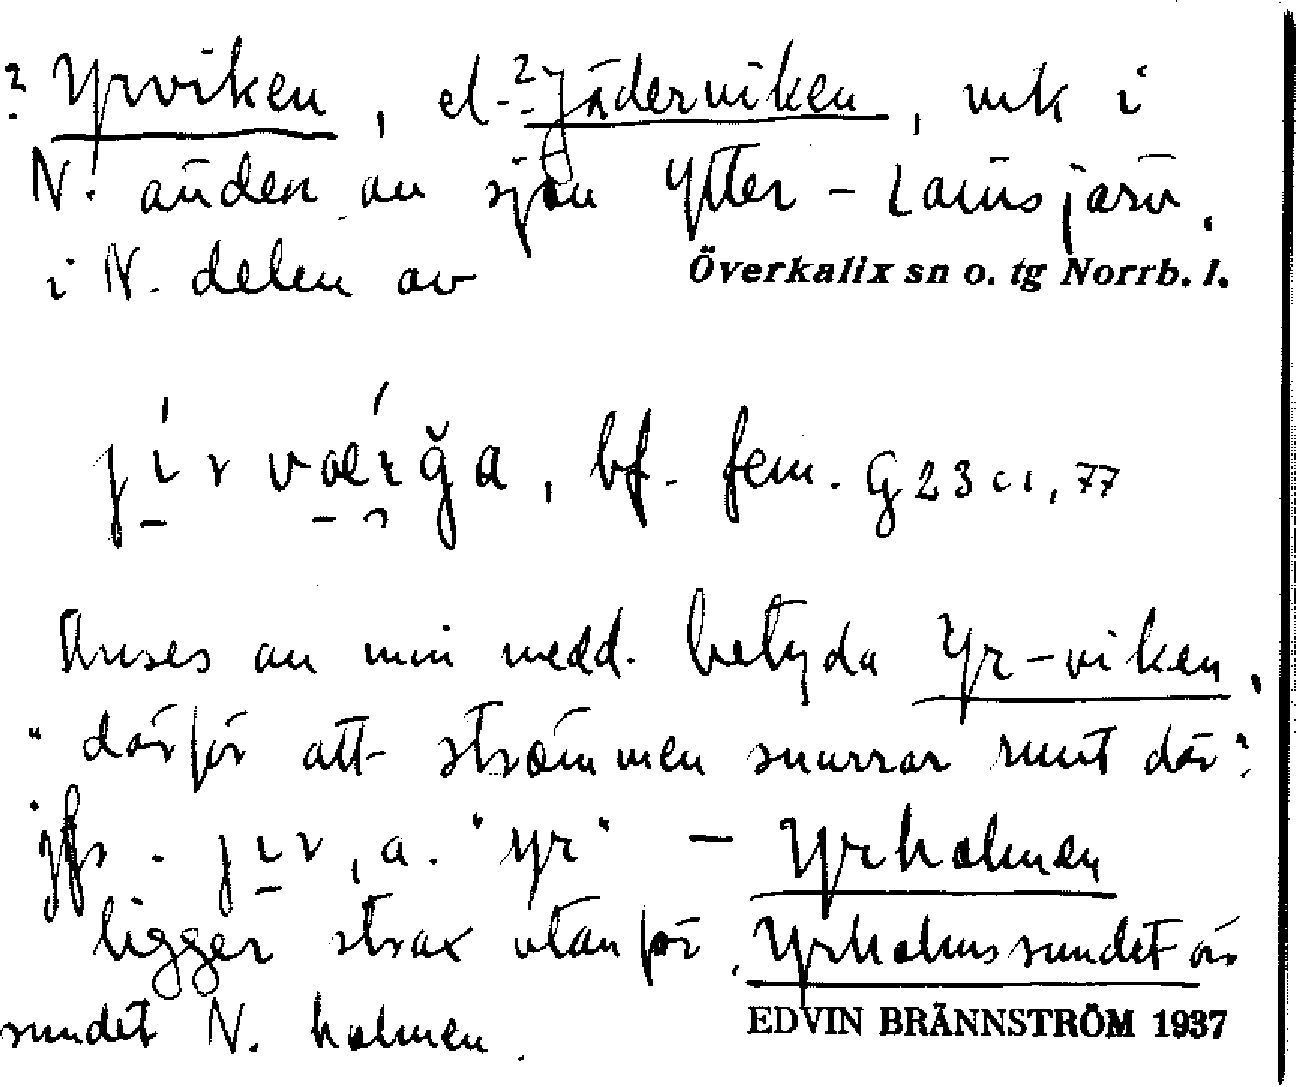 ? Yrviken, el. ? Jäderviken, vik i
N. änden av sjön Ytter-Lansjärv,
i N. delen av Överkalix sn o. tg Norrb. l.
bf. fem. G 23 c1, 77
Anses av min medd. betyda Yr-viken,
"därför att strömmen snurrar runt där".
jfr. jır, a. "yr" – Yrholmen
ligger strax utanför, Yrholmssundet är
sundet N. holmen.
EDVIN BRÄNNSTRÖM 1937